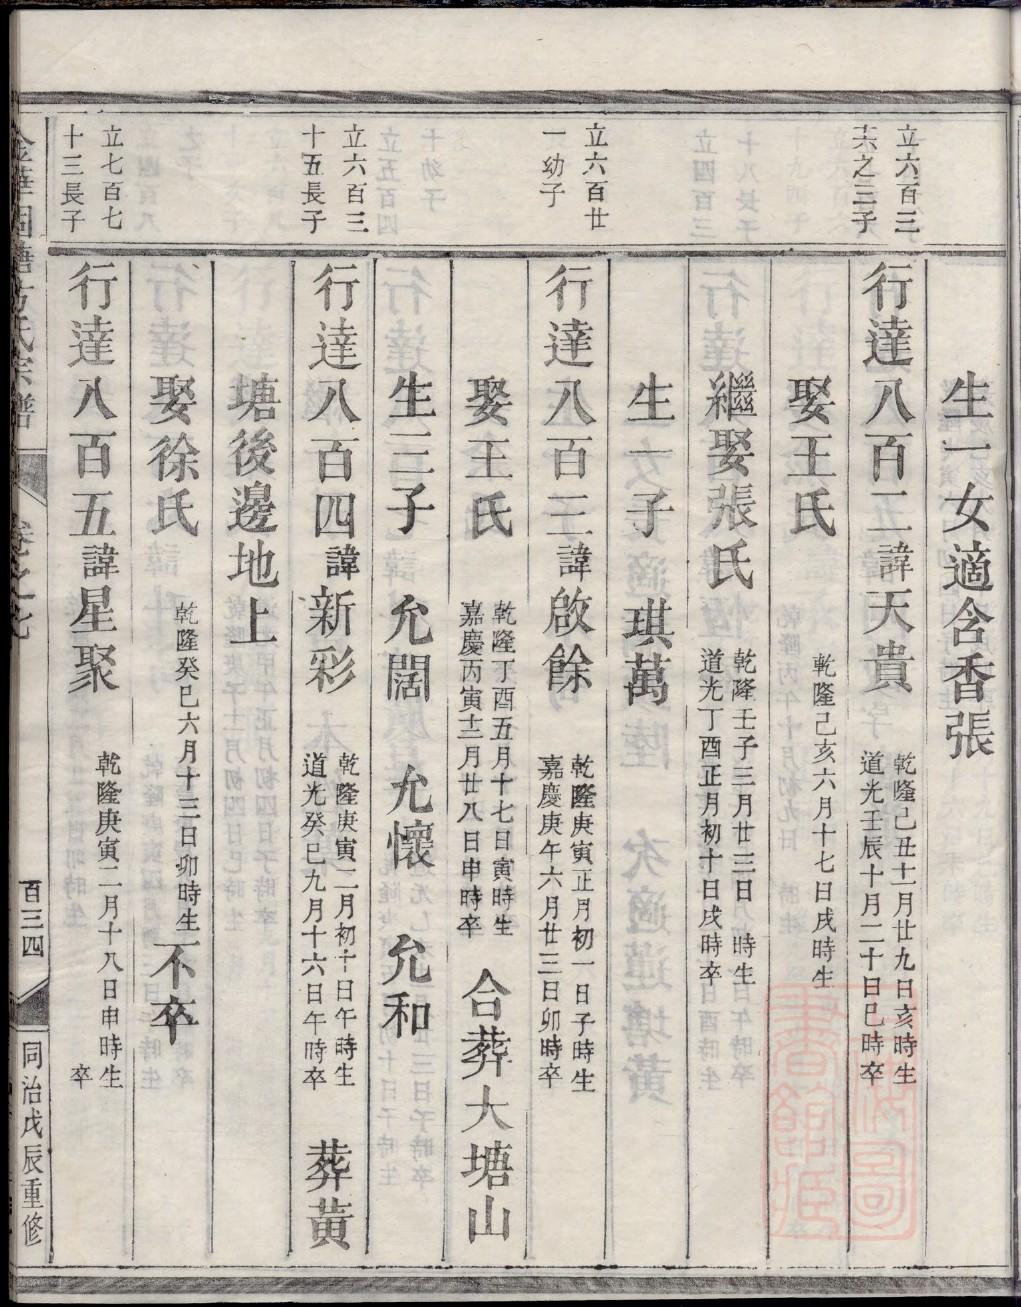 生一女適含香張
立六百三
六之三子
行達八百二諱天貴
乾隆己丑十一月廿九日亥時生
道光壬辰十月二十日巳時卒
娶王氏
乾隆己亥六月十七日戌時生
繼娶張氏
乾隆壬子三月廿三日 時生
道光丁酉正月初十日戌時卒
生一子 琪萬
立六百廿
一幼子
行達八百三諱啟餘
乾隆庚寅正月初一日子時生
嘉慶庚午六月廿三日卯時卒
娶王氏
乾隆丁酉五月十七日寅時生
嘉慶丙寅十二月廿八日申時卒
合葬大塘山
生三子 允闊 允懷 允和
立六百三
十五長子
行達八百四諱新彩
乾隆庚寅二月初十日午時生
道光癸巳九月十六日午時卒
葬黃
塘後邊地上
娶徐氏
乾隆癸巳六月十三日卯時生
不卒
立七百七
十三長子
行達八百五諱星聚
乾隆庚寅二月十八日申時生
卒
卷之七
百三四
同治戊辰重修